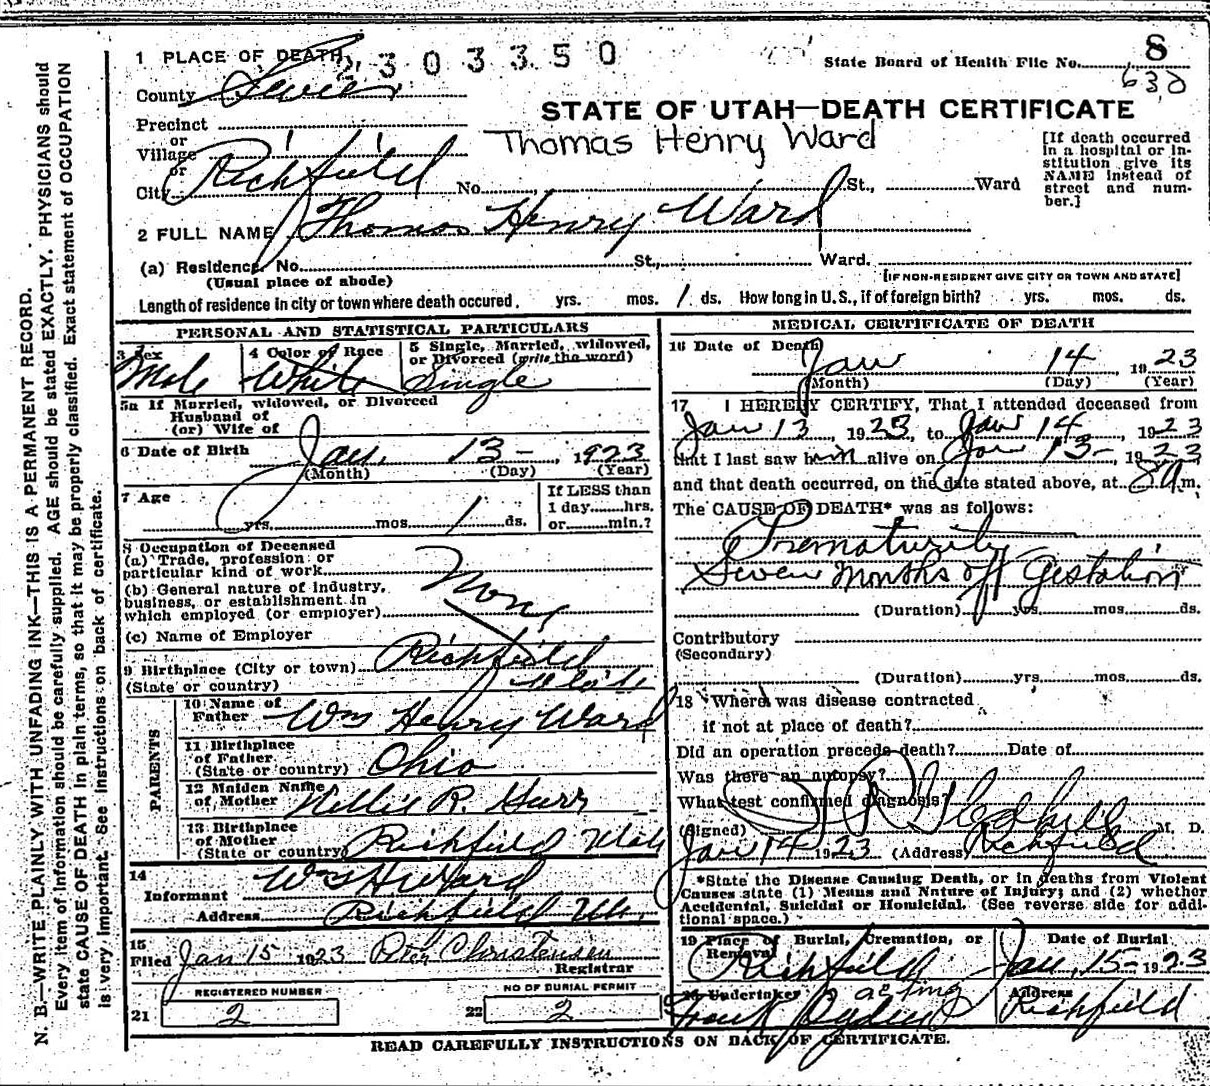 N. B.—WRITE PLAINLY WITH UNFADING INK—THIS IS A PERMANENT RECORD.
Every item of information should be carefully supplied. AGE should be stated EXACTLY. PHYSICIANS should
state CAUSE OF DEATH in plain terms, so that it may be properly classified. Exact statement of OCCUPATION
is very important. See instructions on back of certificate.
1 PLACE OF DEATH 2303350
State Board of Health File No. 8
630
County Sevier
STATE OF UTAH—DEATH CERTIFICATE
Precinct
or
Village
or
Thomas Henry Ward
[If death occurred
in a hospital or in-
stitution give its
NAME instead of
street and num-
ber.]
City Richfield No. St., Ward
2 FULL NAME Thomas Henry Ward
(a) Residence, No. St., Ward.
(Usual place of abode) [IF NON-RESIDENT GIVE CITY OR TOWN AND STATE]
Length of residence in city or town where death occured. yrs. mos. 1 ds. How long in U.S., if of foreign birth? yrs. mos. ds.
PERSONAL AND STATISTICAL PARTICULARS
3 Sex 4 Color of Race 5 Single, Married, widowed,
or Divorced (write the word)
Male White Single
5a If Married, widowed, or Divorced
Husband of
(or) Wife of
6 Date of Birth Jan. 13 - , 1923
(Month) (Day) (Year)
7 Age yrs. mos. 1 ds.
If LESS than
1 day hrs.
or min.?
8 Occupation of Deceased
(a) Trade, profession or
particular kind of work
(b) General nature of industry,
business, or establishment in
which employed (or employer)
None
(c) Name of Employer
9 Birthplace (City or town) Richfield
(State or country) Utah
PARENTS
10 Name of
Father Wm Henry Ward
11 Birthplace
of Father
(State or country) Ohio
12 Maiden Name
of Mother Nellie R.
13 Birthplace
of Mother
(State or country) Richfield Utah
14
Informant Wm H Ward
Address Richfield Ut.
15
Filed Jan 15 1923 Peter Christensen
Registrar
REGISTERED NUMBER NO OF BURIAL PERMIT
21 2 22 2
MEDICAL CERTIFICATE OF DEATH
16 Date of Death Jan 14, 1923
(Month) (Day) (Year)
17 I HEREBY CERTIFY, That I attended deceased from
Jan 13, 1923, to Jan 14, 1923
that I last saw him alive on Jan 13-, 1923
and that death occurred, on the date stated above, at 8 a m.
The CAUSE OF DEATH* was as follows:
Prematurity
Seven Months of Gestation
(Duration) yrs. mos. ds.
Contributory
(Secondary)
(Duration) yrs. mos. ds.
18 Where was disease contracted
if not at place of death?
Did an operation precede death? Date of
Was there an autopsy?
What test confirmed diagnosis?
(Signed) Gledhill M. D.
Jan 14 1923 (Address) Richfield
*State the Disease Causing Death, or in deaths from Violent
Causes state (1) Means and Nature of Injury; and (2) whether
Accidental, Suicidal or Homicidal. (See reverse side for addi-
tional space.)
19 Place of Burial, Cremation, or
Removal Date of Burial
Richfield Jan, 15- 1923
20 Undertaker acting Address
Frank Ogden Richfield
READ CAREFULLY INSTRUCTIONS ON BACK OF CERTIFICATE.